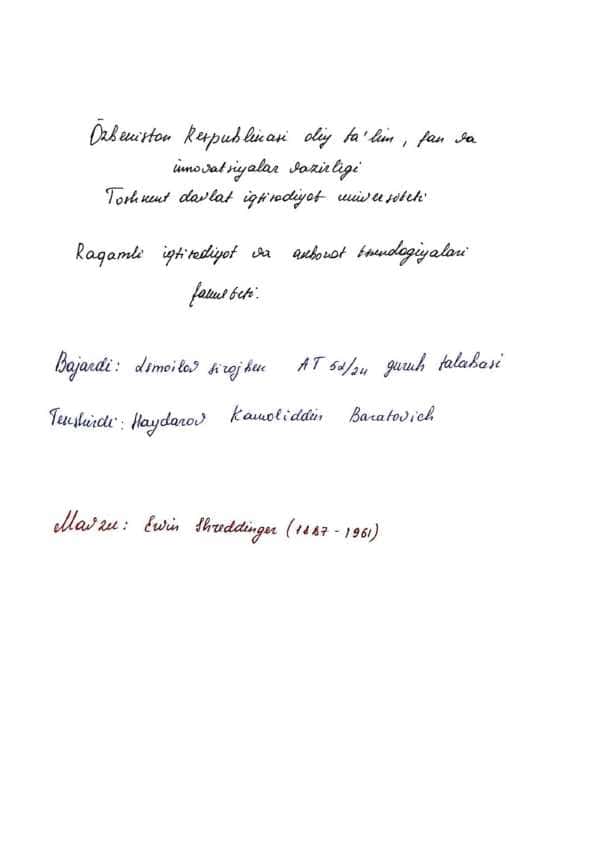 Õzbekiston Respublikasi oliy ta'lim, fan va
innovatsiyalar vazirligi
Toshkent davlat iqtisodiyot universiteti
Raqamli iqtisodiyot va axborot texnologiyalari
fakulteti.
Bajardi: Ismoilov Sirojbek AT 52/24 guruh talabasi
Tekshirdi: Haydarov Kamoliddin Baratovich
Mavzu: Ewin Shreddinger (1887 - 1961)